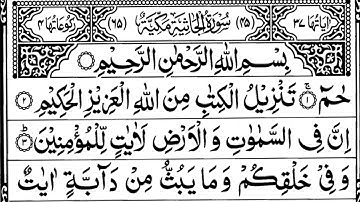 اٰیَاتُهَا ۳۷ (۴۵) سُوْرَةُ الْجَاثِیَةِ مَکِّیَّةٌ (۶۵) رُكُوْعَاتُهَا ۴
بِسْمِ اللهِ الرَّحْمٰنِ الرَّحِیْمِ
حٰمٓ ۚ﴿۱﴾ تَنْزِیْلُ الْكِتٰبِ مِنَ اللهِ الْعَزِیْزِ الْحَكِیْمِ ﴿۲﴾
اِنَّ فِی السَّمٰوٰتِ وَ الْاَرْضِ لَاٰیٰتٍ لِّلْمُؤْمِنِیْنَ ؕ﴿۳﴾
وَ فِیْ خَلْقِكُمْ وَ مَا یَبُثُّ مِنْ دَآبَّةٍ اٰیٰتٌ